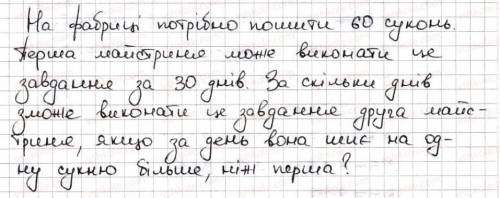 На фабриці потрібно пошити 60 суконь.
Перша майстриня може виконати це
завдання за 30 днів. За скільки днів
зможе виконати це завдання друга майс-
триня, якщо за день вона шиє на од-
ну сукню більше, ніж перша?